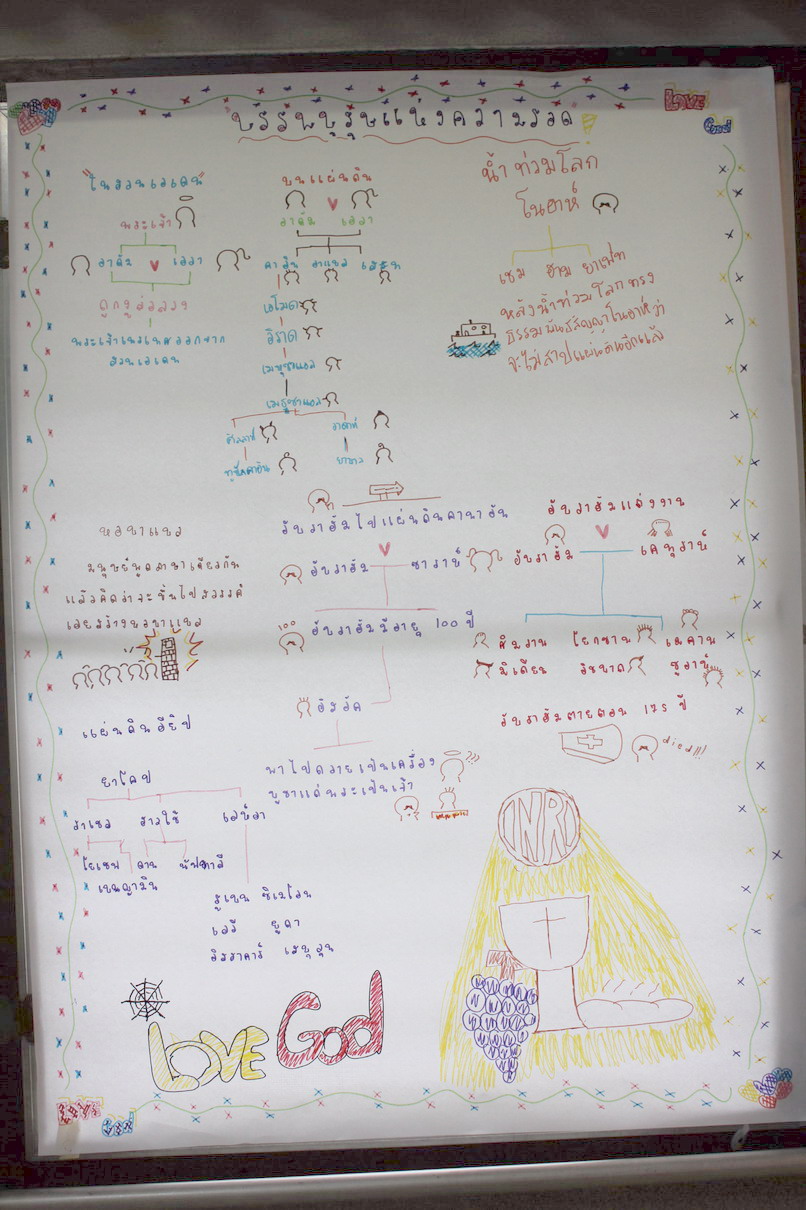 Love
God
บรรพบุรุษแห่งความรอด
"ในสวนเอเดน"
พระเจ้า
อาดัม เอวา
ถูกงูล่อลวง
พระเจ้าเนรเทศออกจาก
สวนเอเดน
บนแผ่นดิน
อาดัม เอวา
คาอิน อาแบล เสธ
เอโนค
อิราด
เมหุยาเอล
เมธูชาเอล
ศิลลาห์ อาดาห์
ทูบัลคาอิน ยาบาล
น้ำท่วมโลก
โนอาห์
เชม ฮาม ยาเฟท
หลังน้ำท่วมโลกทรง
ธรรมพันธสัญญาโนอาห์ว่า
จะไม่สาปแผ่นดินอีกแล้ว
หอบาแบล
มนุษย์พูดภาษาเดียวกัน
แล้วคิดว่าจะขึ้นไปสวรรค์
เลยสร้างหอบาแบล
อับราฮัมไปแผ่นดินคานาอัน
อับราฮัม ซาราห์
อับราฮัมมีอายุ 100 ปี
อิสอัค
พาไปถวายเป็นเครื่อง
บูชาแด่พระเป็นเจ้า
อับราฮัมแต่งงาน
อับราฮัม เคทูราห์
ศิมราน โยกชาน เมดาน
มีเดียน อิชบาก ชูอาห์
อับราฮัมตายตอน 175 ปี
died!!!
แผ่นดินอียิป
ยาโคป
ราเชล สาวใช้ เลห์อา
โยเซฟ ดาน นัฟทาลี
เบนญามิน
รูเบน ซิเมโอน
เลวี ยูดา
อิสสาคาร์ เศบูลุน
INRI
LOVE God
Love
God